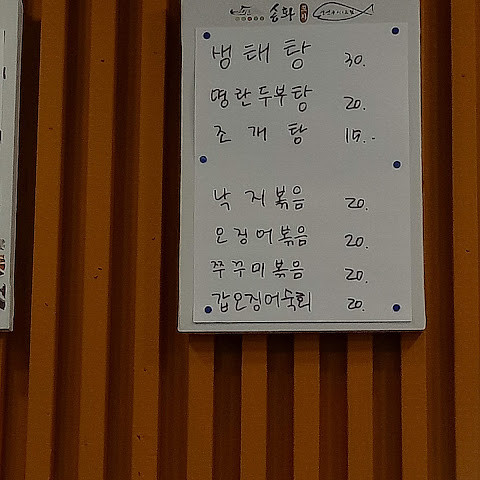 송화
생태탕 30.
명란두부탕 20.
조개탕 15.-
낙지볶음 20.
오징어볶음 20.
쭈꾸미볶음 20.
갑오징어숙회 20.